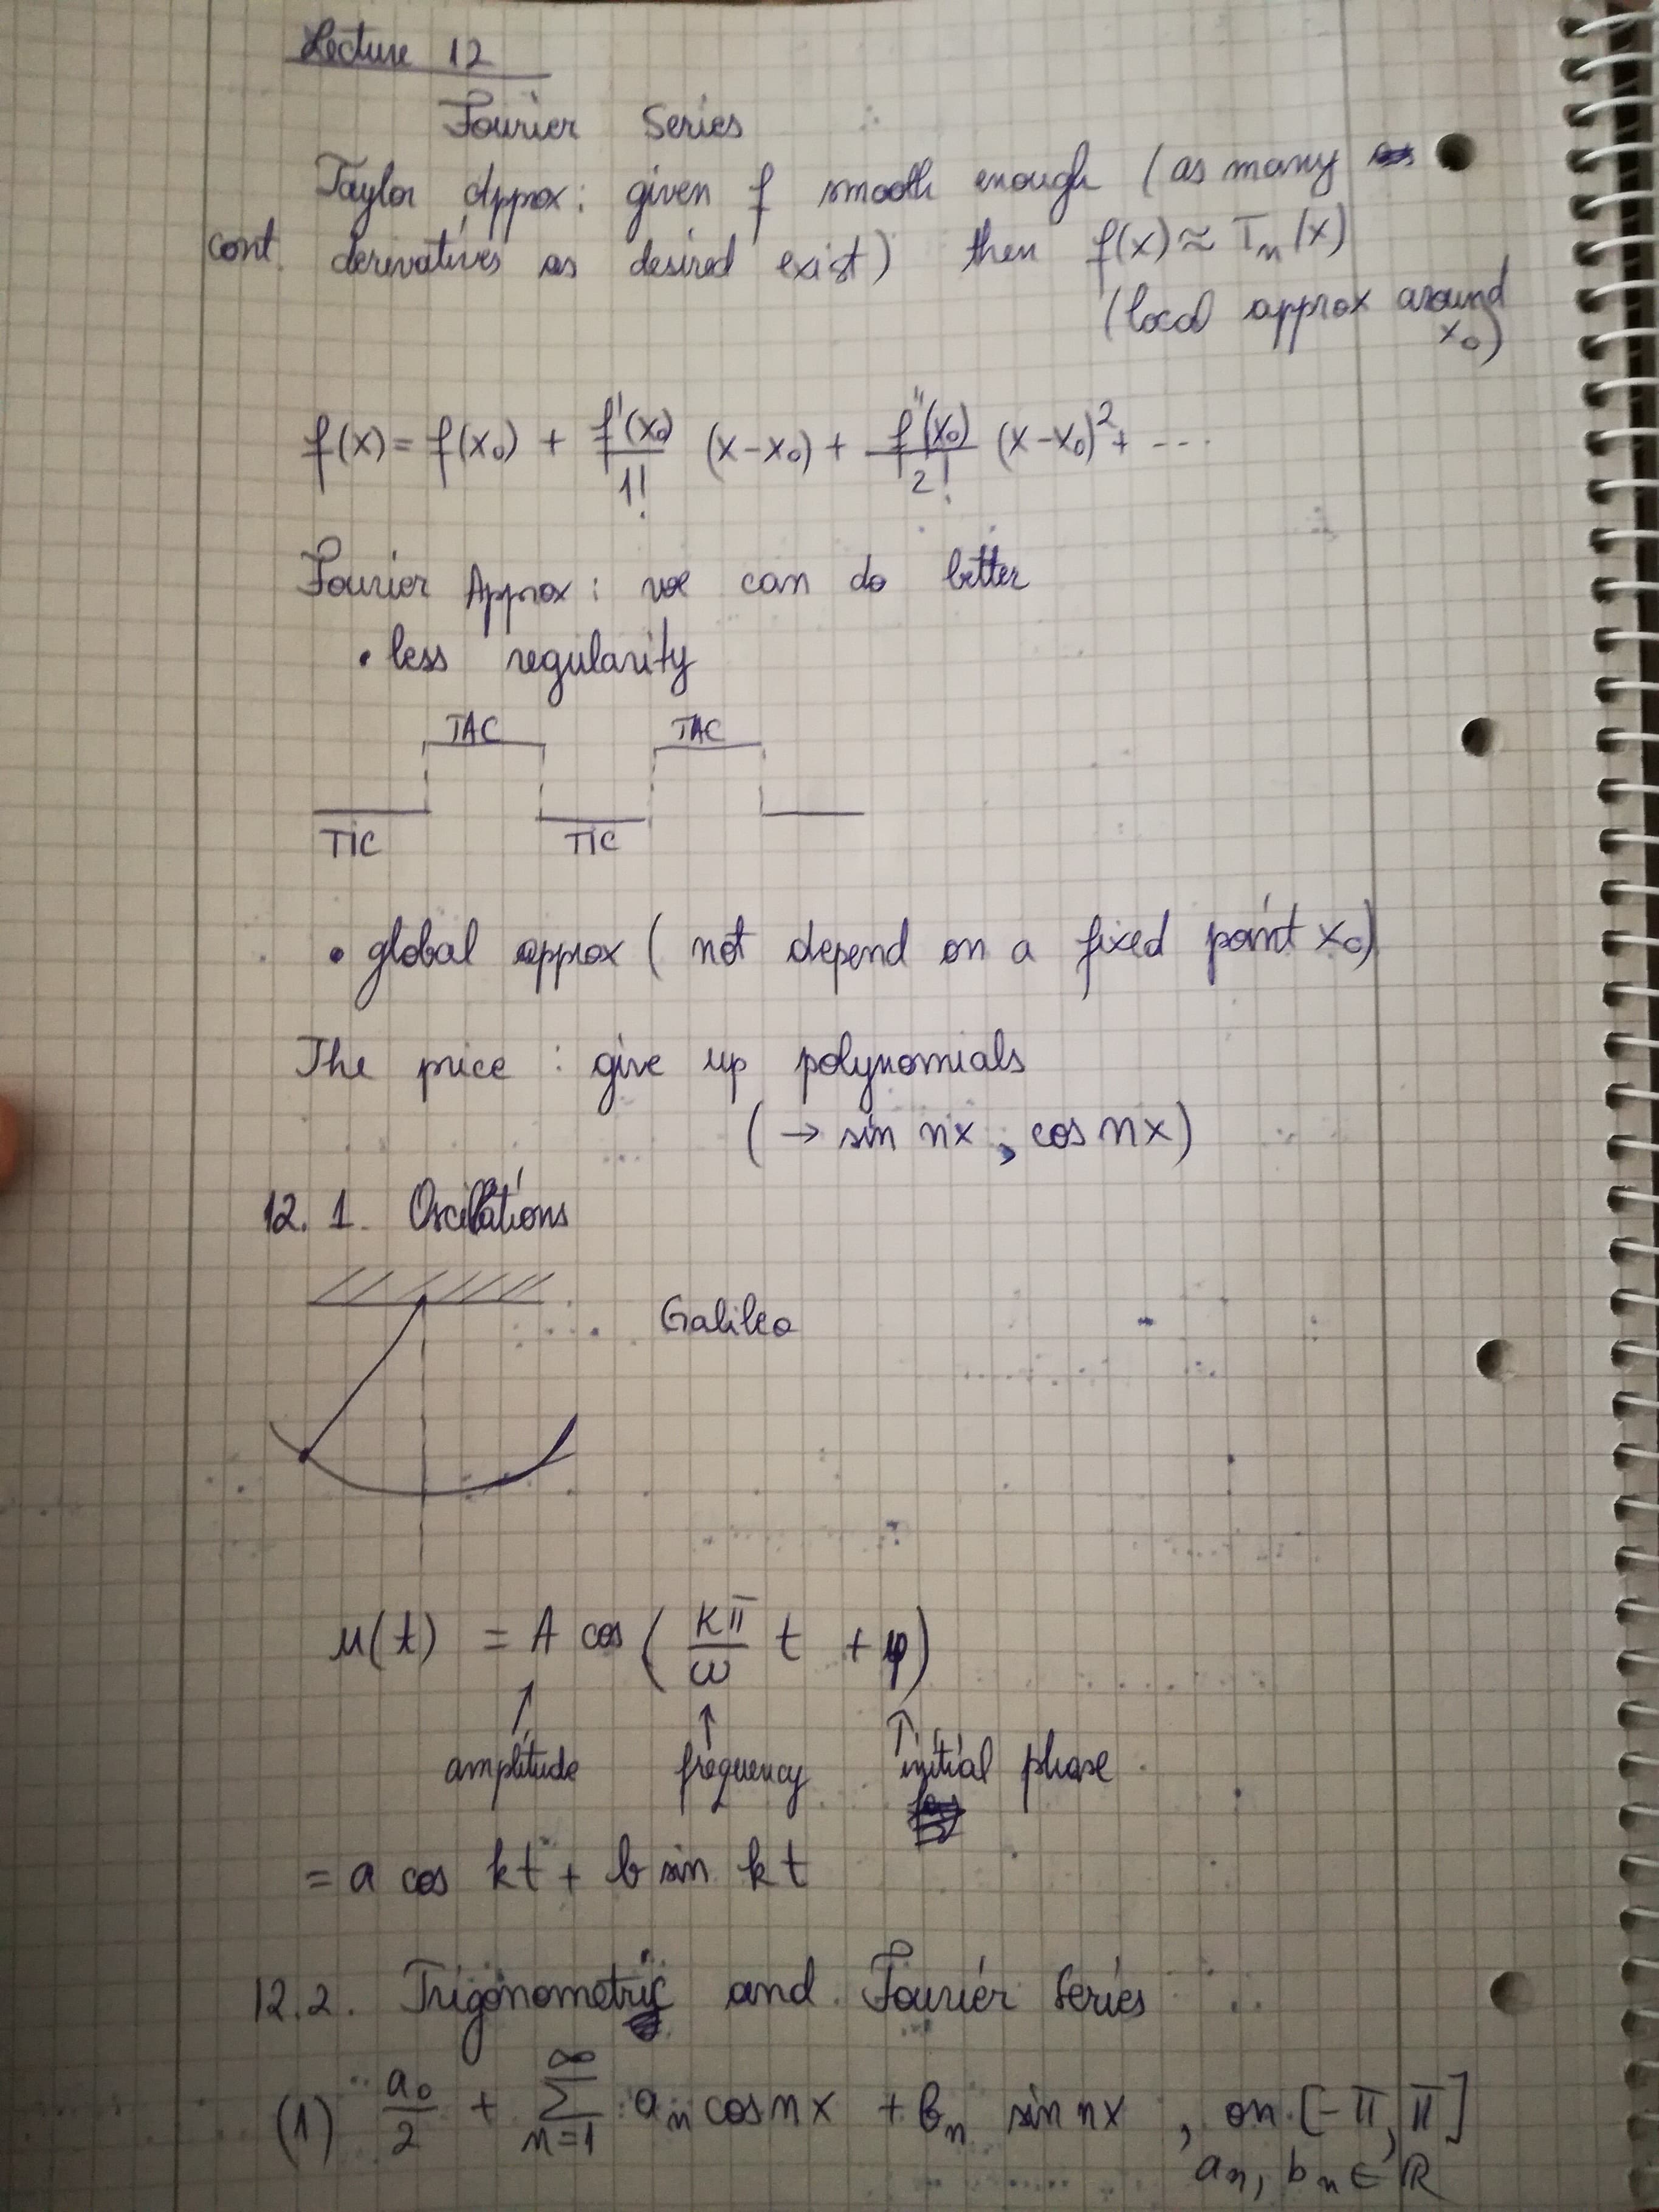 Lecture 12
Fourier Series
Taylor Approx: given f smooth enough (as many
cont. derivatives as desired exist) then f(x) ≈ Tn(x)
(local approx around
x₀)
f(x) = f(x₀) + f'(x₀)/1! (x-x₀) + f''(x₀)/2! (x-x₀)² + ...
Fourier Approx: we can do better
• less regularity
TAC TAC
TIC TIC
• global approx (not depend on a fixed point x₀)
The price: give up polynomials
(→ sin nx, cos nx)
12. 1. Oscillations
Galileo
u(t) = A cos(kπ/ω t + φ)
amplitude frequency initial phase
= a cos kt + b sin kt
12.2. Trigonometric and Fourier Series
(1) a₀/2 + ∞∑n=1 aₙ cos nx + bₙ sin nx, on [-π, π]
aₙ, bₙ ∈ ℝ